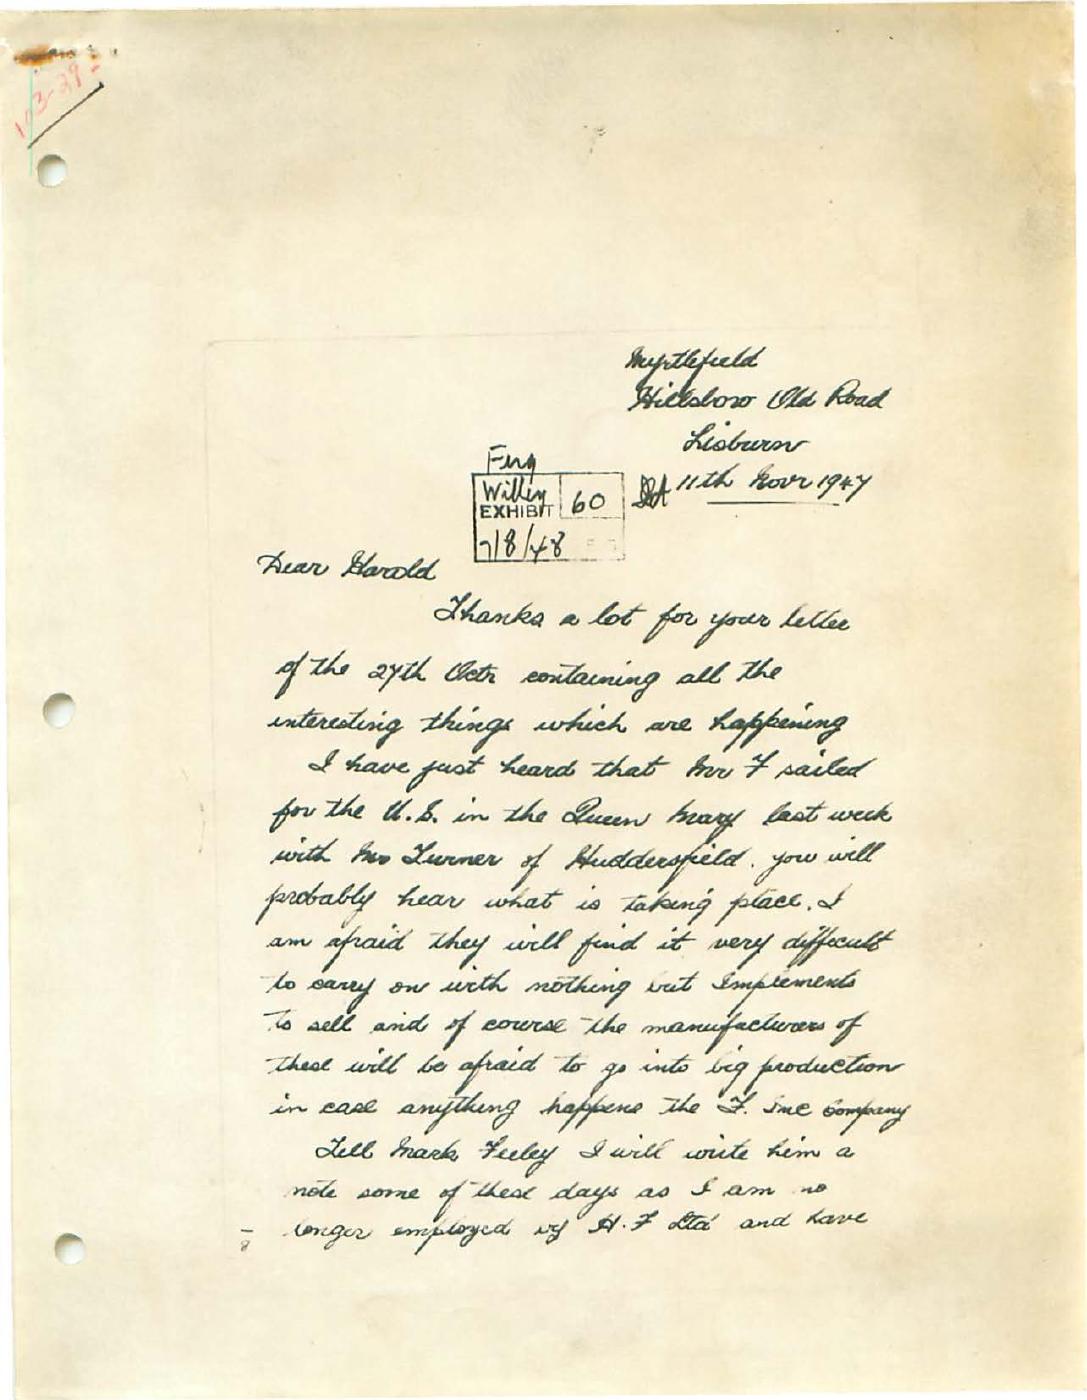 103-29-
Myrtlefield
Hillsboro Old Road
Lisburn
11th Novr 1947
Ferg
Willey
EXHIBIT 60
7/8/48
Dear Harold
Thanks a lot for your letter
of the 27th Octr containing all the
interesting things which are happening
I have just heard that Mr F sailed
for the U.S. in the Queen Mary last week
with Mr Turner of Huddersfield. you will
probably hear what is taking place. I
am afraid they will find it very difficult
to carry on with nothing but Implements
to sell and of course the manufacturers of
these will be afraid to go into big production
in case anything happens the F. Inc Company
Tell Mark Feeley I will write him a
note some of these days as I am no
longer employed by H.F Ltd and have